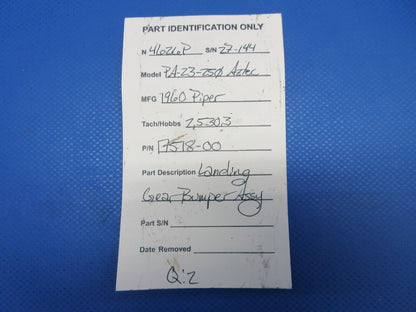 PART IDENTIFICATION ONLY
N 4626P S/N 27-144
Model PA-23-250 Aztec
MFG 1960 Piper
Tach/Hobbs 2,530.3
P/N 17518-00
Part Description Landing
Gear Bumper Assy
Part S/N
Date Removed
Q:2